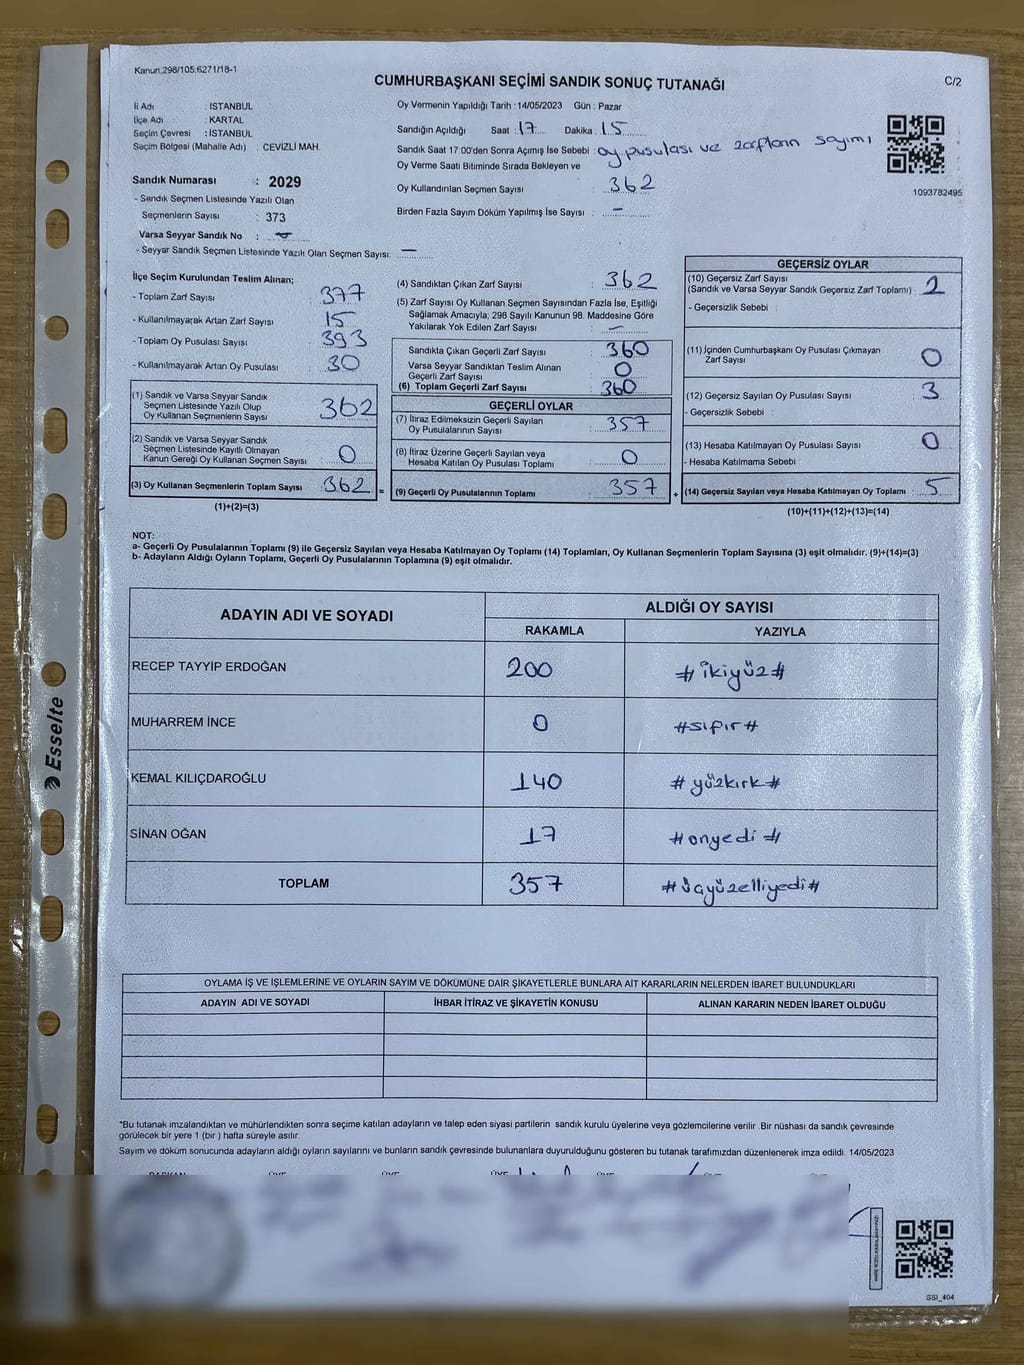 Kanun:298/105;6271/18-1
CUMHURBAŞKANI SEÇİMİ SANDIK SONUÇ TUTANAĞI
C/2
İl Adı : İSTANBUL
İlçe Adı : KARTAL
Seçim Çevresi : İSTANBUL
Seçim Bölgesi (Mahalle Adı) : CEVİZLİ MAH.
Oy Vermenin Yapıldığı Tarih : 14/05/2023 Gün : Pazar
Sandığın Açıldığı Saat : 17 Dakika : 15
Sandık Saat 17:00'den Sonra Açımış İse Sebebi : oy pusulası ve zarfların sayımı
Oy Verme Saati Bitiminde Sırada Bekleyen ve
Oy Kullandırılan Seçmen Sayısı : 362
Birden Fazla Sayım Döküm Yapılmış İse Sayısı : -
1093782495
Sandık Numarası : 2029
- Sandık Seçmen Listesinde Yazılı Olan
Seçmenlerin Sayısı : 373
Varsa Seyyar Sandık No : -
- Seyyar Sandık Seçmen Listesinde Yazılı Olan Seçmen Sayısı: -
İlçe Seçim Kurulundan Teslim Alınan;
- Toplam Zarf Sayısı : 377
- Kullanılmayarak Artan Zarf Sayısı : 15
- Toplam Oy Pusulası Sayısı : 393
- Kullanılmayarak Artan Oy Pusulası : 30
(1) Sandık ve Varsa Seyyar Sandık
Seçmen Listesinde Yazılı Olup
Oy Kullanan Seçmenlerin Sayısı : 362
(2) Sandık ve Varsa Seyyar Sandık
Seçmen Listesinde Kayıtlı Olmayan
Kanun Gereği Oy Kullanan Seçmen Sayısı : 0
(3) Oy Kullanan Seçmenlerin Toplam Sayısı : 362 =
(1)+(2)=(3)
(4) Sandıktan Çıkan Zarf Sayısı : 362
(5) Zarf Sayısı Oy Kullanan Seçmen Sayısından Fazla İse, Eşitliği
Sağlamak Amacıyla, 298 Sayılı Kanunun 98. Maddesine Göre
Yakılarak Yok Edilen Zarf Sayısı : -
Sandıkta Çıkan Geçerli Zarf Sayısı : 360
Varsa Seyyar Sandıktan Teslim Alınan
Geçerli Zarf Sayısı : 0
(6) Toplam Geçerli Zarf Sayısı : 360
GEÇERLİ OYLAR
(7) İtiraz Edilmeksizin Geçerli Sayılan
Oy Pusulalarının Sayısı : 357
(8) İtiraz Üzerine Geçerli Sayılan veya
Hesaba Katılan Oy Pusulası Toplamı : 0
(9) Geçerli Oy Pusulalarının Toplamı : 357 +
GEÇERSİZ OYLAR
(10) Geçersiz Zarf Sayısı
(Sandık ve Varsa Seyyar Sandık Geçersiz Zarf Toplamı) : 2
- Geçersizlik Sebebi :
(11) İçinden Cumhurbaşkanı Oy Pusulası Çıkmayan
Zarf Sayısı : 0
(12) Geçersiz Sayılan Oy Pusulası Sayısı : 3
- Geçersizlik Sebebi :
(13) Hesaba Katılmayan Oy Pusulası Sayısı : 0
- Hesaba Katılmama Sebebi :
(14) Geçersiz Sayılan veya Hesaba Katılmayan Oy Toplamı : 5
(10)+(11)+(12)+(13)=(14)
NOT:
a- Geçerli Oy Pusulalarının Toplamı (9) ile Geçersiz Sayılan veya Hesaba Katılmayan Oy Toplamı (14) Toplamları, Oy Kullanan Seçmenlerin Toplam Sayısına (3) eşit olmalıdır. (9)+(14)=(3)
b- Adayların Aldığı Oyların Toplamı, Geçerli Oy Pusulalarının Toplamına (9) eşit olmalıdır.
ADAYIN ADI VE SOYADI ALDIĞI OY SAYISI
RAKAMLA YAZIYLA
RECEP TAYYİP ERDOĞAN 200 #ikiyüz#
MUHARREM İNCE 0 #sıfır#
KEMAL KILIÇDAROĞLU 140 #yüzkırk#
SİNAN OĞAN 17 #onyedi#
TOPLAM 357 #üçyüzelliyedi#
OYLAMA İŞ VE İŞLEMLERİNE VE OYLARIN SAYIM VE DÖKÜMÜNE DAİR ŞİKAYETLERLE BUNLARA AİT KARARLARIN NELERDEN İBARET BULUNDUKLARI
ADAYIN ADI VE SOYADI İHBAR İTİRAZ VE ŞİKAYETİN KONUSU ALINAN KARARIN NEDEN İBARET OLDUĞU
*Bu tutanak imzalandıktan ve mühürlendikten sonra seçime katılan adayların ve talep eden siyasi partilerin sandık kurulu üyelerine veya gözlemcilerine verilir .Bir nüshası da sandık çevresinde
görülecek bir yere 1 (bir ) hafta süreyle asılır.
Sayım ve döküm sonucunda adayların aldığı oyların sayılarını ve bunların sandık çevresinde bulunanlara duyurulduğunu gösteren bu tutanak tarafımızdan düzenlenerek imza edildi. 14/05/2023
SSI_404
Esselte